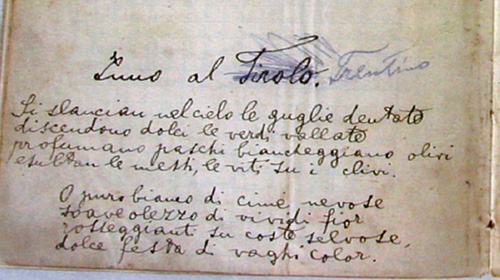 Inno al Tirolo. Trentino
Si slancian nel cielo le guglie dentate
discendono dolci le verdi vallate
profumano paschi biancheggiano olivi
esultan le messi, le viti su i clivi.
O puro biamo di cime nevose
soave olezzo di vividi fior
rosseggianti su coste selvose,
dolce festa di vaghi color.